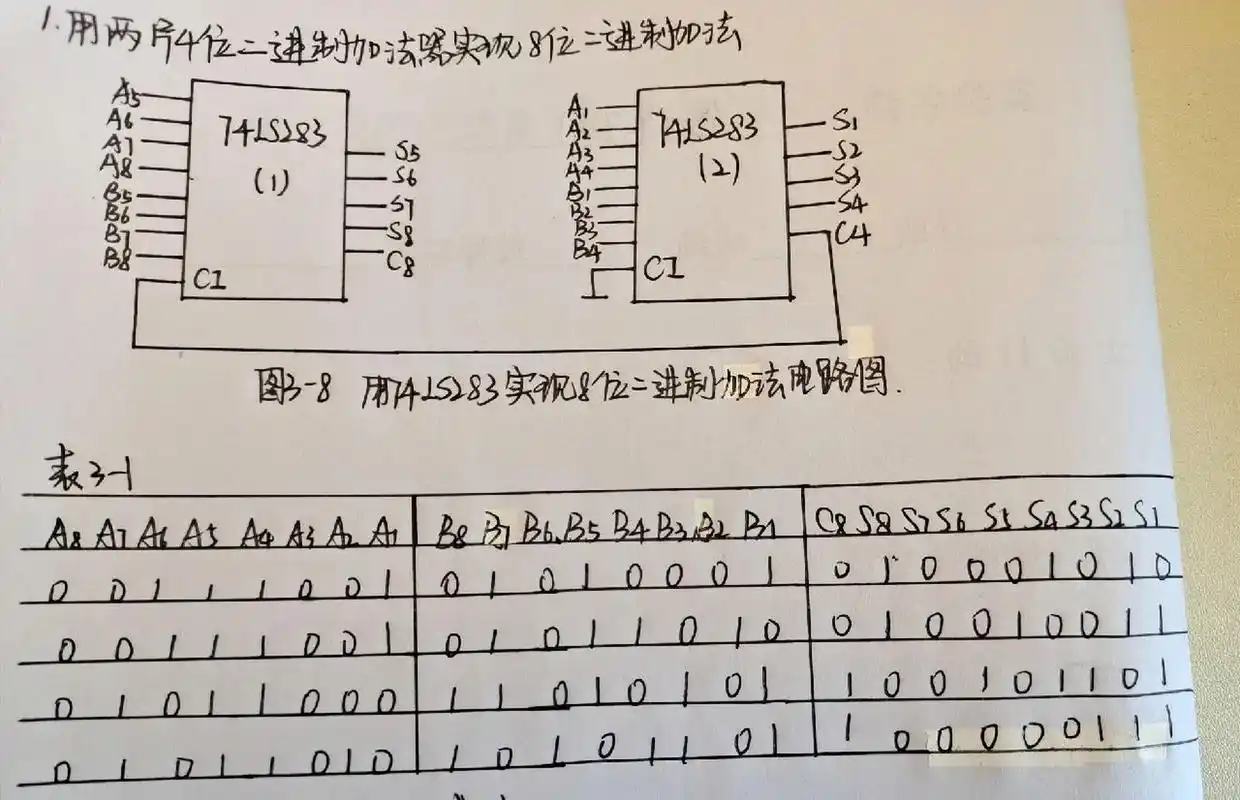 1. 用两片4位二进制加法器实现8位二进制加法
A5
A6
A7
A8
B5
B6
B7
B8
CI
74LS283
(1)
S5
S6
S7
S8
C8
A1
A2
A3
A4
B1
B2
B3
B4
CI
74LS283
(2)
S1
S2
S3
S4
C4
图3-8 用74LS283实现8位二进制加法电路图.
表3-1
A8 A7 A6 A5 A4 A3 A2 A1 B8 B7 B6 B5 B4 B3 B2 B1 C8 S8 S7 S6 S5 S4 S3 S2 S1
0 0 1 1 1 0 0 1 0 1 0 1 0 0 0 1 0 1 0 0 0 1 0 1 0
0 0 1 1 1 0 0 1 0 1 0 1 1 0 1 0 0 1 0 0 1 0 0 1 1
0 1 0 1 1 0 0 0 1 1 0 1 0 1 0 1 1 0 0 1 0 1 1 0 1
0 1 0 1 1 0 1 0 1 0 1 0 1 1 0 1 1 0 0 0 0 0 1 1 1